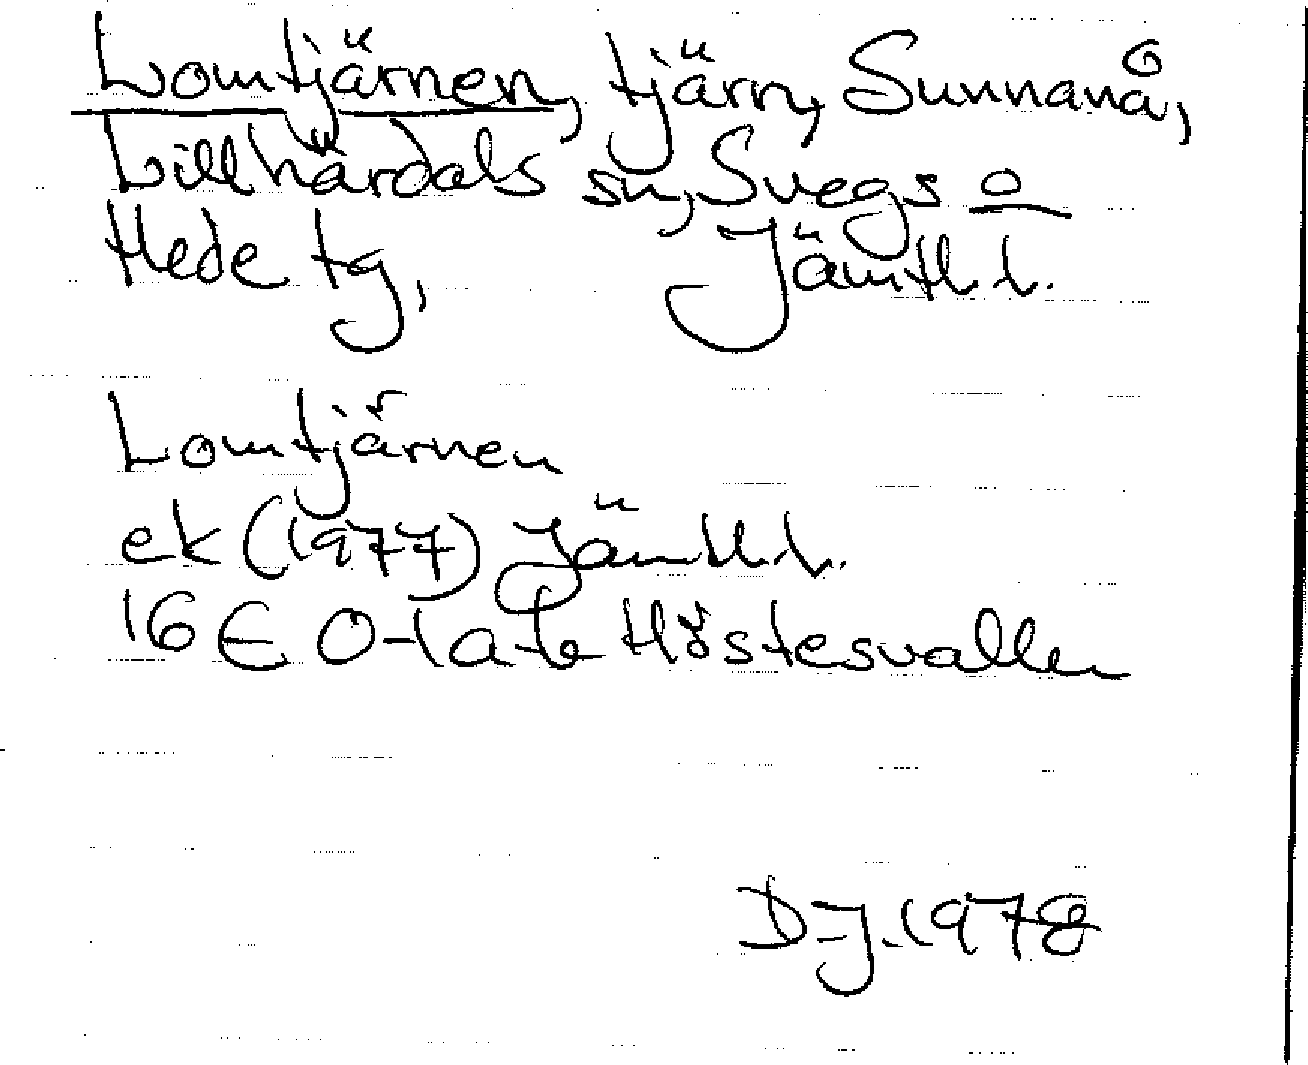 Lomtjärnen, tjärn, Sunnanå,
Lillhärdals sn, Svegs o
Hede tg, Jämtl. l.
Lomtjärnen
ek (1977) Jämtl. l.
16 E 0-1a-b Höstesvallen
D.J. 1978